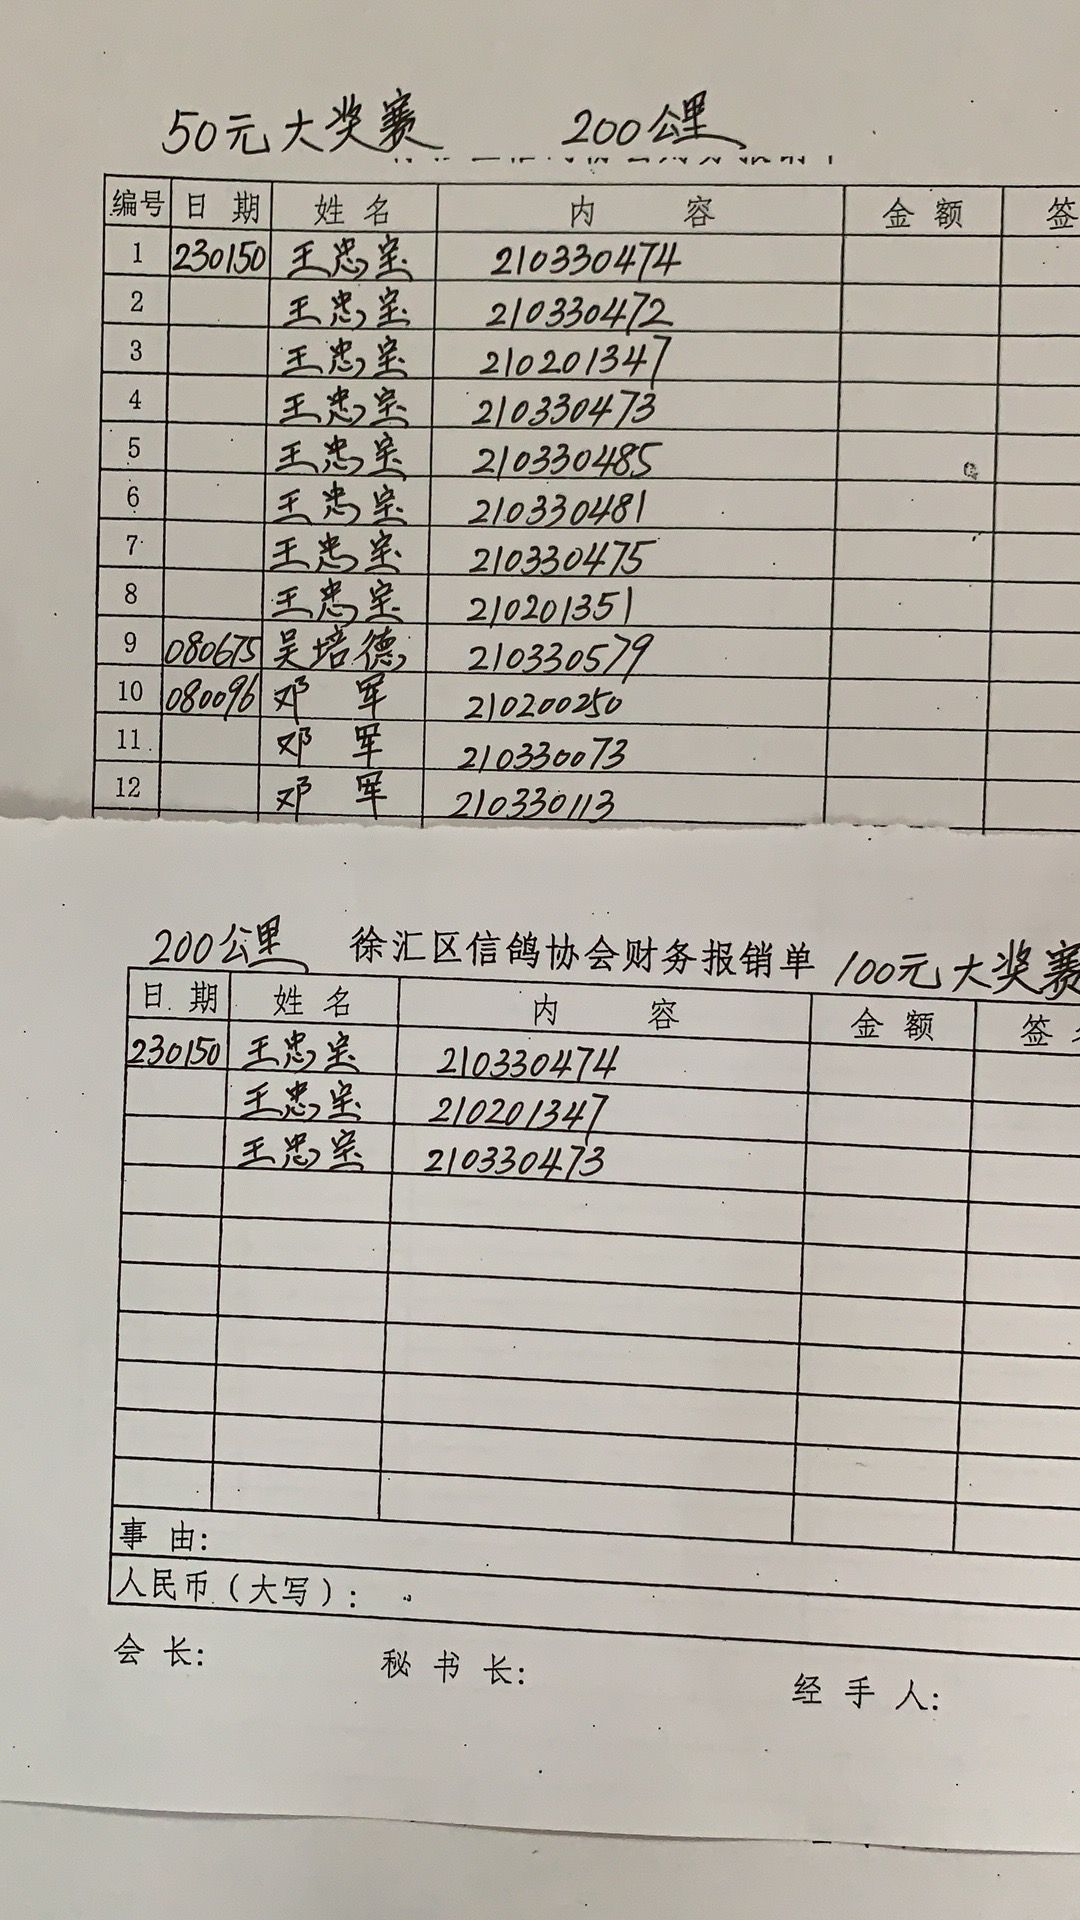 50元大奖赛 200公里
编号 日期 姓名 内容 金额 签
1 230150 王忠宝 210330474
2 王忠宝 210330472
3 王忠宝 210201347
4 王忠宝 210330473
5 王忠宝 210330485
6 王忠宝 210330481
7 王忠宝 210330475
8 王忠宝 210201351
9 080675 吴培德 210330579
10 080096 邓军 210200250
11 邓军 210330073
12 邓军 210330113
200公里 徐汇区信鸽协会财务报销单 100元大奖赛
日期 姓名 内容 金额 签
230150 王忠宝 210330474
王忠宝 210201347
王忠宝 210330473
事由:
人民币(大写):
会长: 秘书长: 经手人: